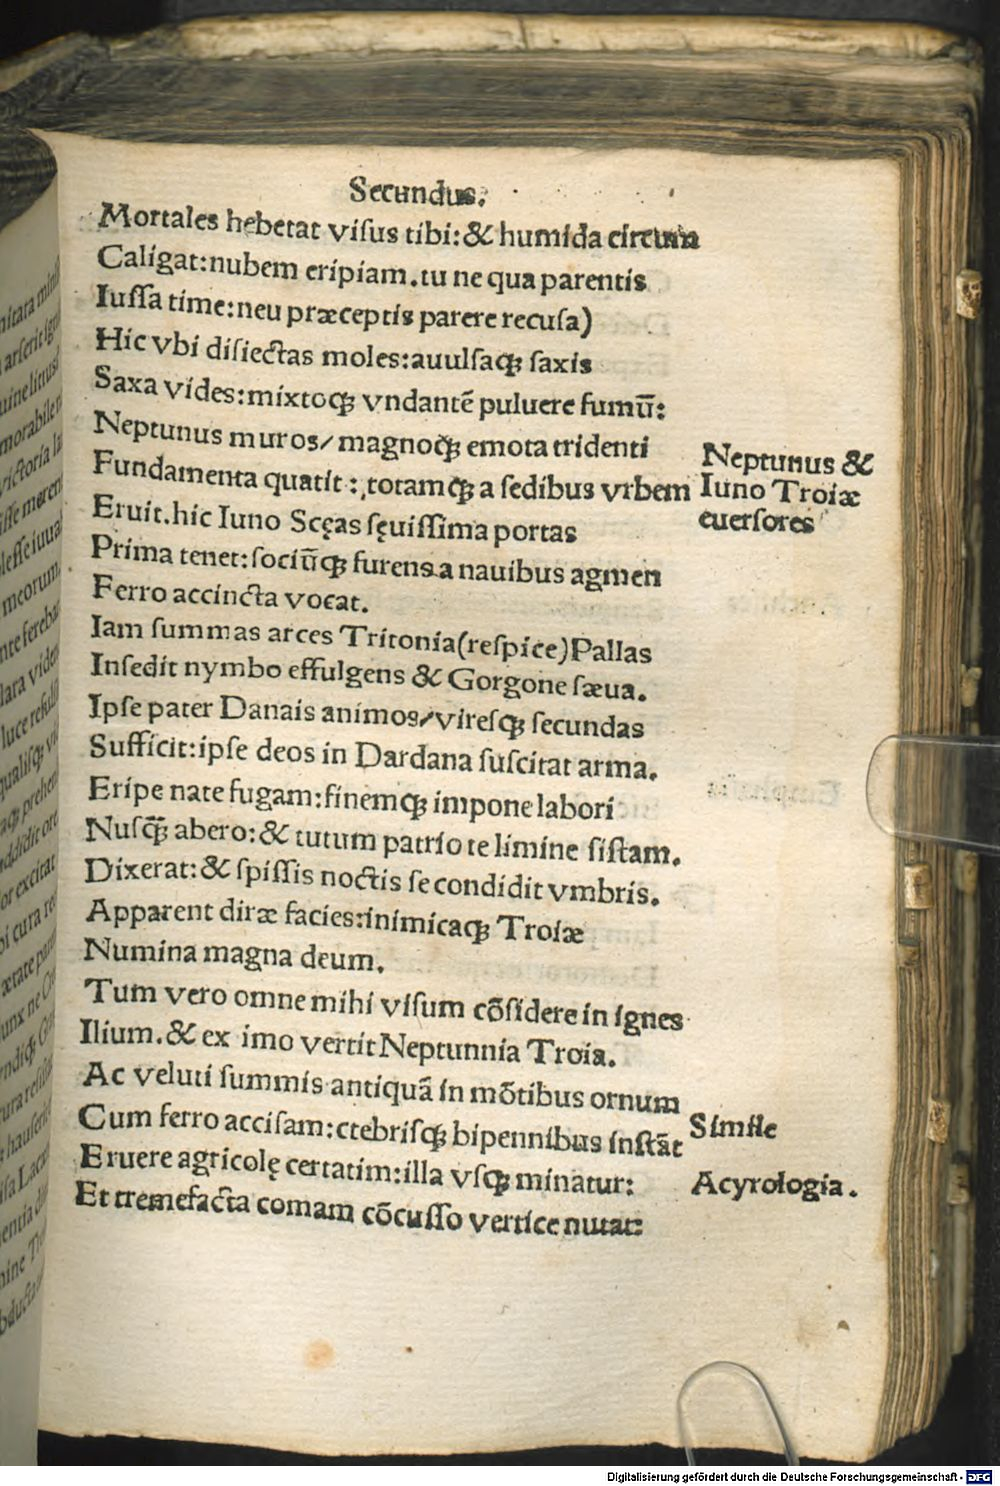 Secundus.
Mortales hebetat viſus tibi:& humida circum
Caligat:nubem eripiam.tu ne qua parentis
Iuſſa time:neu præceptis parere recuſa)
Hic vbi diſiectas moles:auulſaqꝫ ſaxis
Saxa vides:mixtoqꝫ vndantē puluere fumū:
Neptunus muros/magnoqꝫ emota tridenti
Fundamenta quatit:totamqꝫ a ſedibus vrbem
Eruit.hic Iuno Scęas ſęuiſſima portas
Prima tenet:ſociūqꝫ furens a nauibus agmen
Ferro accincta vocat.
Iam ſummas arces Tritonia(reſpice)Pallas
Inſedit nymbo effulgens & Gorgone ſæua.
Ipſe pater Danais animos/vireſqꝫ ſecundas
Sufficit:ipſe deos in Dardana ſuſcitat arma.
Eripe nate fugam:finemqꝫ impone labori
Nuſqꝫ̄ abero:& tutum patrio te limine ſiſtam.
Dixerat:& ſpiſſis noctis ſe condidit vmbris.
Apparent diræ facies:inimicaqꝫ Troiæ
Numina magna deum.
Tum vero omne mihi viſum cōſidere in ignes
Ilium.& ex imo vertit Neptunnia Troia.
Ac veluti ſummis antiquā in mōtibus ornum
Cum ferro acciſam:ctebriſqꝫ bipennibus inſtāt
Eruere agricolę certatim:illa vſqꝫ minatur:
Et tremefacta comam cōcuſſo vertice nutat:
Neptunus &
Iuno Troiæ
euerſores
Simile
Acyrologia.
Digitalisierung gefördert durch die Deutsche Forschungsgemeinschaft - DFG